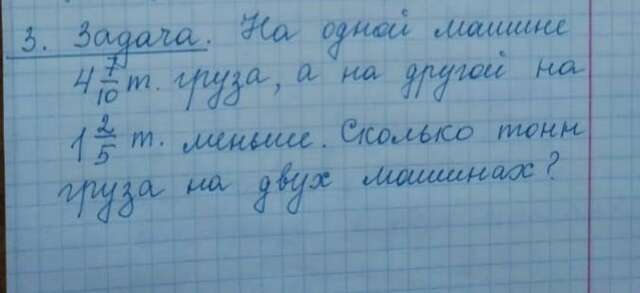 3. Задача. На одной машине
4 7/10 т. груза, а на другой на
1 2/5 т. меньше. Сколько тонн
груза на двух машинах?